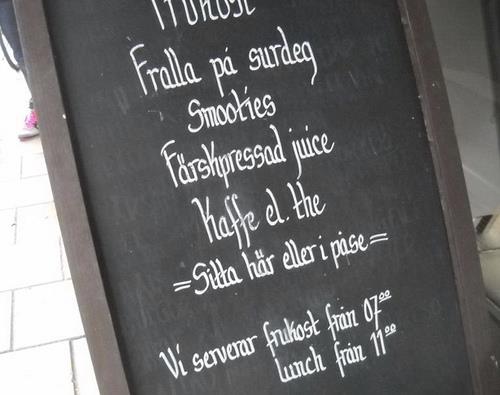 frukost
Fralla på surdeg
Smooties
Färskpressad juice
Kaffe el. the
=Sitta här eller i påse=
Vi serverar frukost från 07⁰⁰
lunch från 11⁰⁰